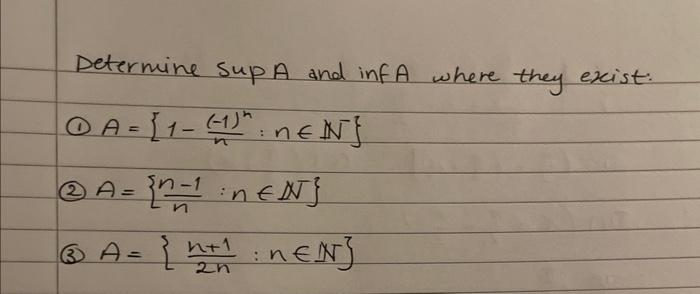 Determine sup A and inf A where they exist:
① A = {1 - (-1)ⁿ/n : n ∈ ℕ}
② A = {n-1/n : n ∈ ℕ}
③ A = {n+1/2n : n ∈ ℕ}